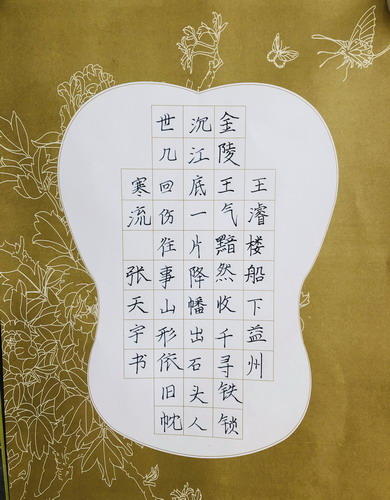 王濬楼船下益州
金陵王气黯然收千寻铁锁
沉江底一片降幡出石头人
世几回伤往事山形依旧枕
寒流 张天宇书